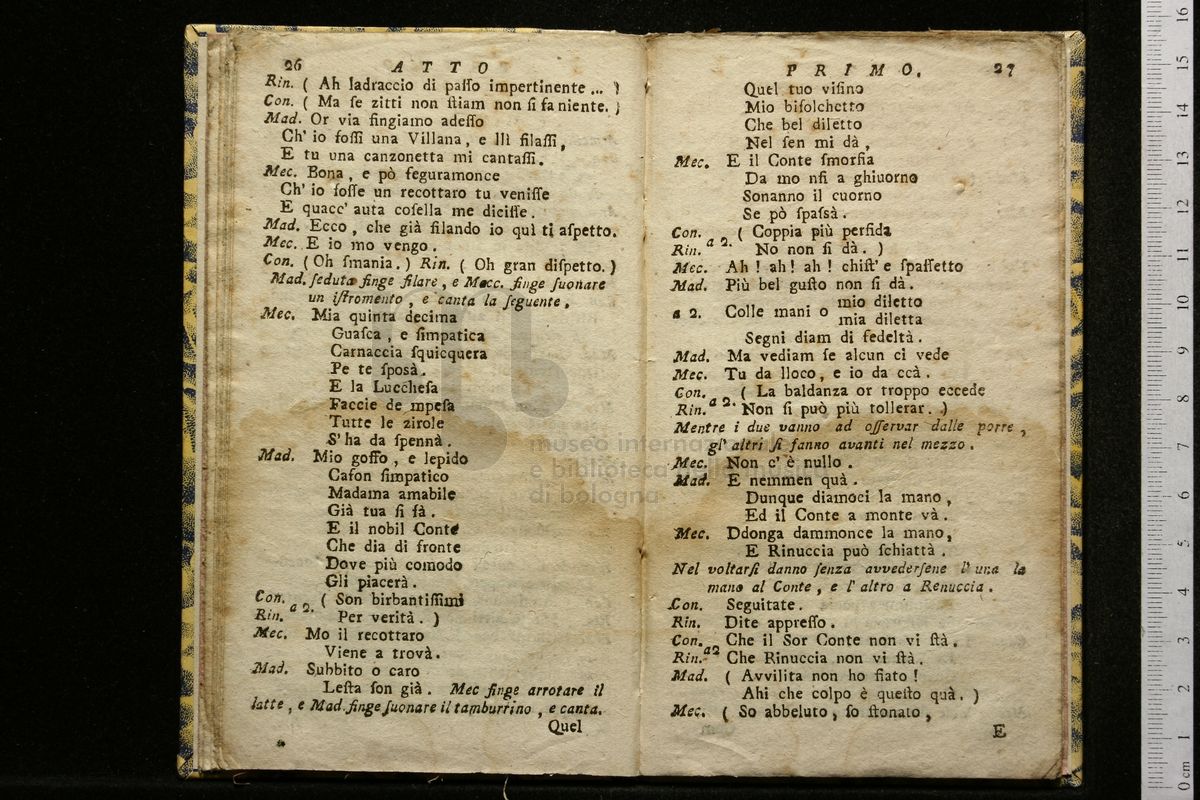 26 ATTO
Rin. ( Ah ladraccio di paſſo impertinente ... )
Con. ( Ma ſe zitti non ſtiam non ſi fa niente. )
Mad. Or via fingiamo adeſſo
Ch' io foſſi una Villana, e lì filaſſi,
E tu una canzonetta mi cantaſſi.
Mec. Bona, e pò feguramonce
Ch' io foſſe un recottaro tu veniſſe
E quacc' auta coſella me diciſſe.
Mad. Ecco, che già filando io quì ti aſpetto.
Mec. E io mo vengo.
Con. ( Oh ſmania. ) Rin. ( Oh gran diſpetto. )
Mad. ſeduta finge filare, e Mecc. finge ſuonare
un iſtromento, e canta la ſeguente.
Mec. Mia quinta decima
Guaſca, e ſimpatica
Carnaccia ſquicquera
Pe te ſposà.
E la Luccheſa
Faccie de mpeſa
Tutte le zirole
S' ha da ſpennà.
Mad. Mio goffo, e lepido
Caſon ſimpatico
Madama amabile
Già tua ſi fà.
E il nobil Conte
Che dia di fronte
Dove più comodo
Gli piacerà.
Con. Rin. a 2. ( Son birbantiſſimi
Per verità. )
Mec. Mo il recottaro
Viene a trovà.
Mad. Subbito o caro
Leſta ſon già. Mec finge arrotare il
latte, e Mad. finge ſuonare il tamburrino, e canta.
Quel
PRIMO. 27
Quel tuo viſino
Mio biſolchetto
Che bel diletto
Nel ſen mi dà,
Mec. E il Conte ſmorfia
Da mo nfi a ghiuorno
Sonanno il cuorno
Se pò ſpaſsà.
Con. Rin. a 2. ( Coppia più perfida
No non ſi dà. )
Mec. Ah! ah! ah! chiſt' e ſpaſſetto
Mad. Più bel guſto non ſi dà.
a 2. Colle mani o mio diletto
mia diletta
Segni diam di fedeltà.
Mad. Ma vediam ſe alcun ci vede
Mec. Tu da lloco, e io da ccà.
Con. Rin. a 2. ( La baldanza or troppo eccede
Non ſi può più tollerar. )
Mentre i due vanno ad oſſervar dalle porre,
gl' altri ſi fanno avanti nel mezzo.
Mec. Non c' è nullo.
Mad. E nemmen quà.
Dunque diamoci la mano,
Ed il Conte a monte và.
Mec. Ddonga dammonce la mano,
E Rinuccia può ſchiattà.
Nel voltarſi danno ſenza avvederſene l' una la
mano al Conte, e l' altro a Renuccia.
Con. Seguitate.
Rin. Dite appreſſo.
Con. Che il Sor Conte non vi ſtà.
Rin. a2 Che Rinuccia non vi ſtà.
Mad. ( Avvilita non ho fiato!
Ahi che colpo è queſto quà. )
Mec. ( So abbeluto, ſo ſtonato,
E
museo internazionale
e biblioteca della musica
di bologna
0 cm 1 2 3 4 5 6 7 8 9 10 11 12 13 14 15 16